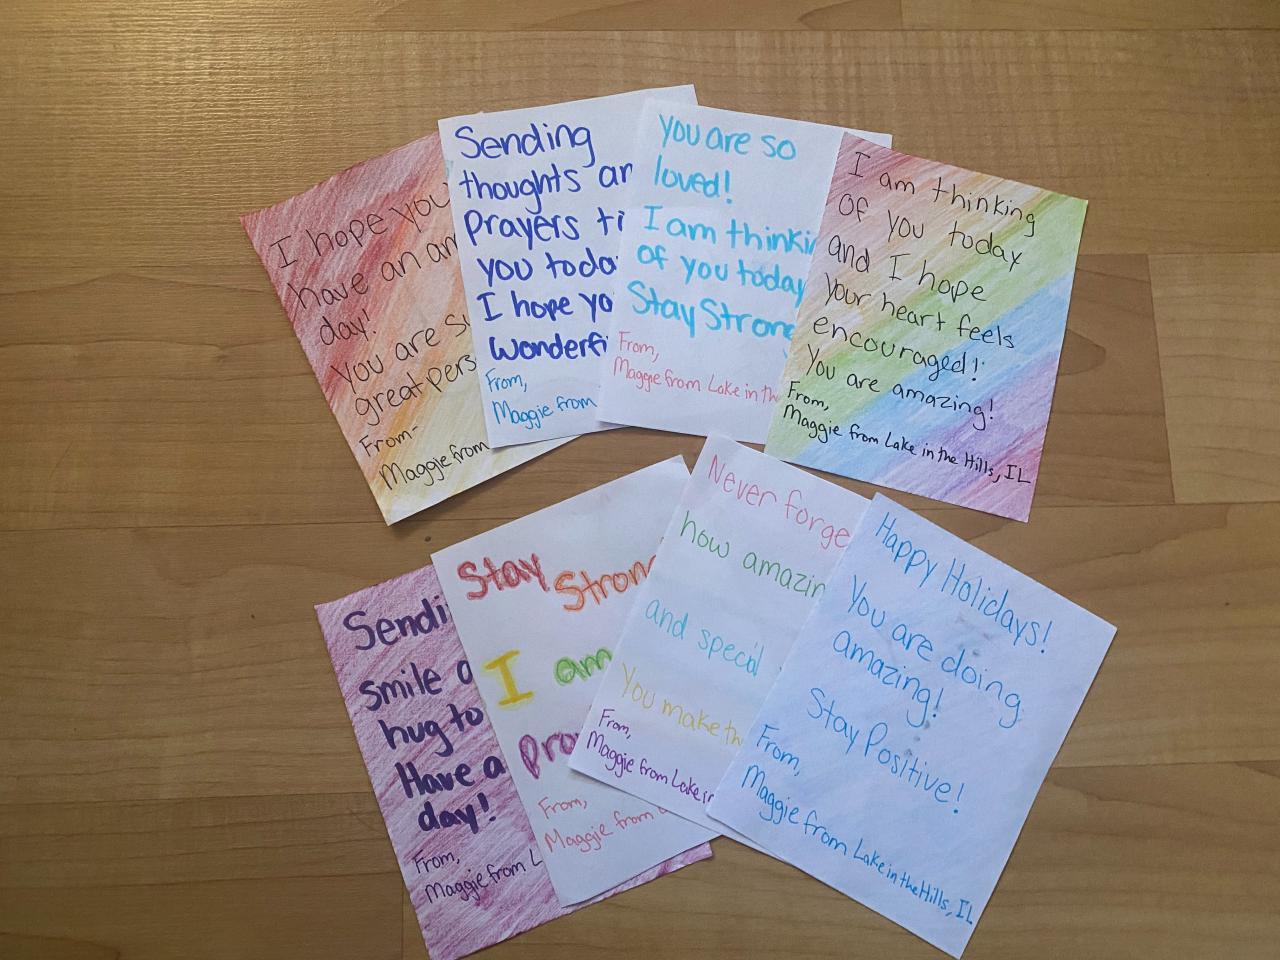 I hope you
have an
day!
you are
great
From-
Maggie from
Sending
thoughts
Prayers
you
I hope
Wonderful
From,
Maggie from
you are so
loved!
I am
of you today
Stay Strong
From,
Maggie from Lake in the
I am thinking
of you today
and I hope
your heart feels
encouraged!
You are amazing!
From,
Maggie from Lake in the Hills, IL
smile
hug to
Have a
day!
From,
Maggie from
Stay Strong
I am
From,
Maggie from
Never
how
and special
You make
From,
Maggie from Lake in
Happy Holidays!
You are doing
amazing!
Stay Positive!
From,
Maggie from Lake in the Hills, IL